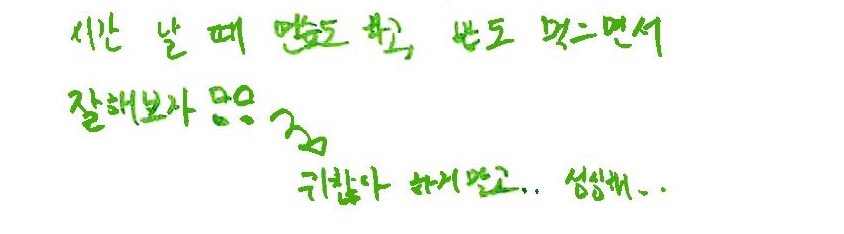 시간 날 때 연습도 하고, 밥도 먹으면서
잘해보자
귀찮다 하게말고.. 성실해..